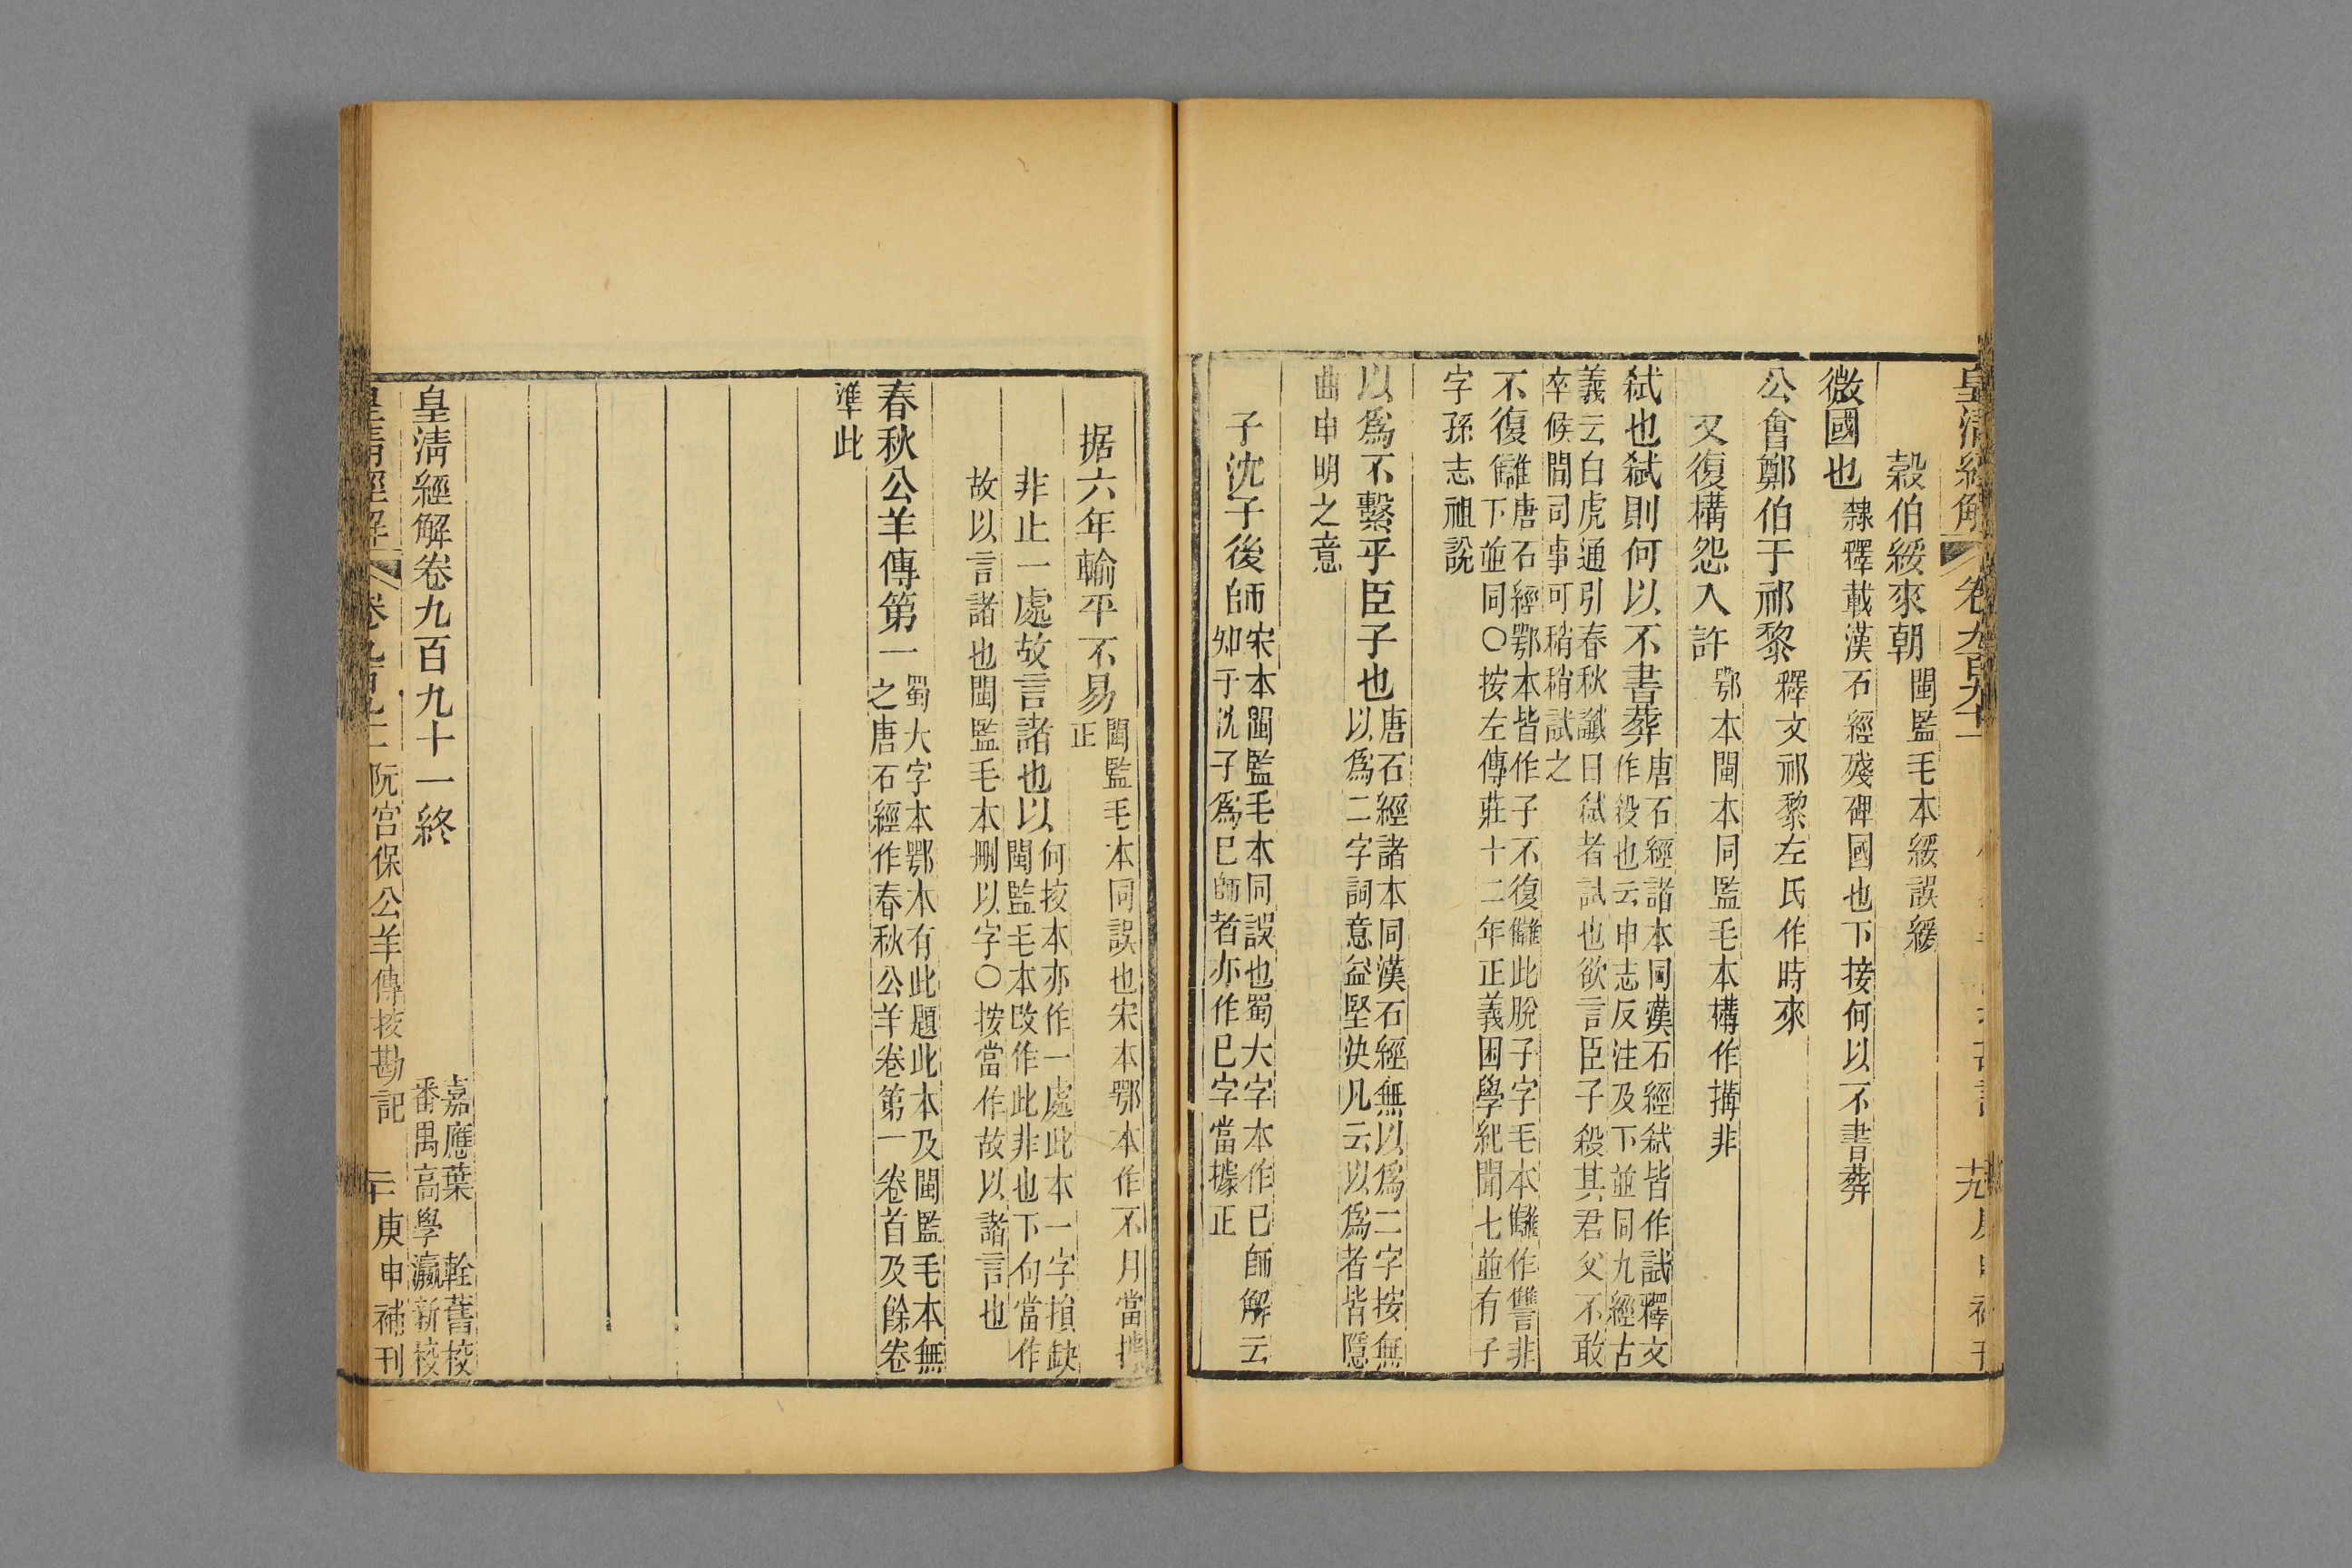 皇清經解 卷九百九十一
穀伯綏來朝 閩監毛本綏誤緩
微國也 隸釋載漢石經殘碑國也下接何以不書葬
公會鄭伯于祁黎 釋文祁黎左氏作時來
又復構怨入許 鄂本閩本同監毛本構作搆非
弑也弑則何以不書葬 唐石經諸本同漢石經弑皆作試釋文
作殺也云申志反注及下並同九經古
義云白虎通引春秋讖曰弑者試也欲言臣子殺其君父不敢
卒候閒司事可稍稍試之
不復讎 唐石經鄂本皆作子不復讎此脫子字毛本讎作讐非
下並同○按左傳莊十二年正義困學紀聞七並有子
字孫志祖說
以爲不繫乎臣子也 唐石經諸本同漢石經無以爲二字按無
以爲二字詞意益堅決凡云以爲者皆隱
曲申明之意
子沈子後師 宋本閩監毛本同誤也蜀大字本作已師解云
知子沈子爲已師者亦作已字當據正
据六年輸平不易 閩監毛本同誤也宋本鄂本作不月當據
正
非止一處故言諸也以 何挍本亦作一處此本一字損缺
閩監毛本改作此非也下句當作
故以言諸也閩監毛本刪以字○按當作故以諸言也
春秋公羊傳第一 蜀大字本鄂本有此題此本及閩監毛本無
之唐石經作春秋公羊卷第一卷首及餘卷
準此
皇清經解卷九百九十一終
嘉應葉 輇舊校
番禺高學瀛新校
皇清經解 卷九百九十一 阮宮保公羊傳挍勘記 二十 庚申補刊